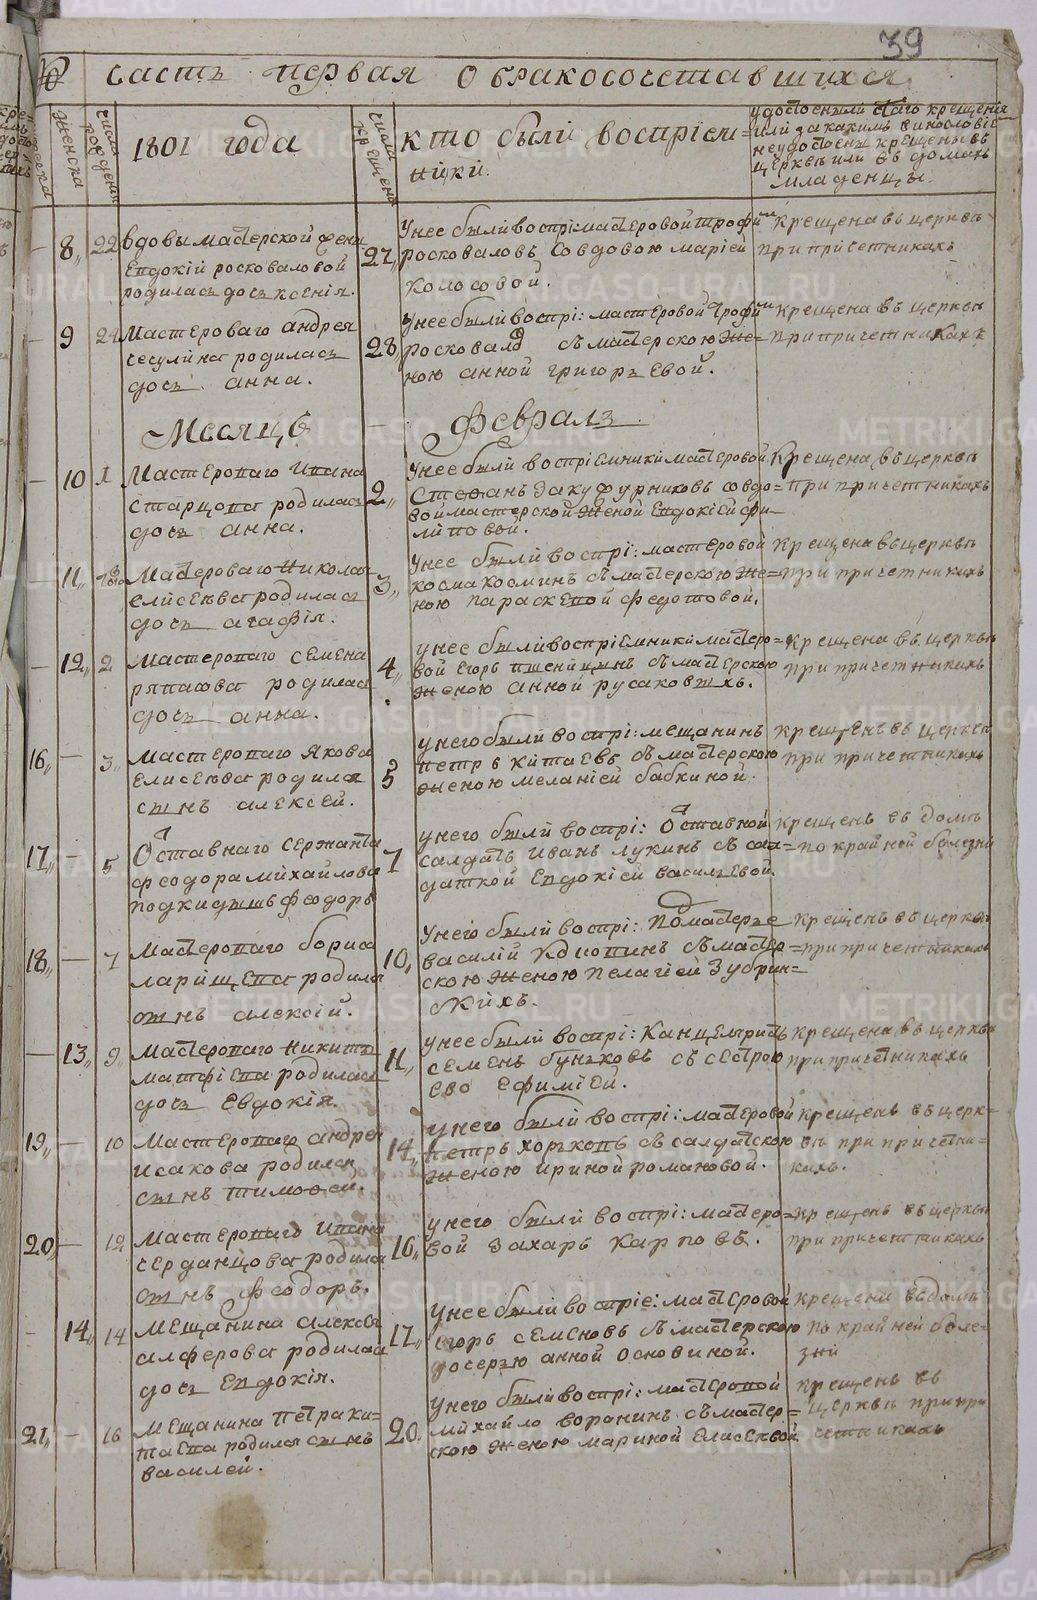 39
часть первая о бракосочетавшихся
женска
числа рождения
1801 года
числа крещения
кто были воспрiем=
ники.
удостоены ли с̃таго крещенiя
или за какимъ винословiе
неудостоены крещены въ
церкве или въ домахъ
младенцы.
8„ 22 вдовы мастерской жены
Евдокiй росковаловой
родилась дочь ксенiя.
27„ Унее были воспрi: мастеровой трофи
росковаловъ совдовою марiей
колосовой.
крещена въ церкве
при причетникахъ
9 24 Мастероваго андрея
чесулина родилась
дочь анна.
28 Унее были воспрi: мастеровой трофи
росковалов съ мастерскою же=
ною анной григорьевой.
крещена въ церкве
при причетникахъ
Месяцъ Февраль
10 1 Мастероваго Ивана
старцова родилась
дочь анна.
2„ Унее были воспрiемники мастеровой
Стефанъ закуфурниковъ со вдо=
вой мастерской женой Евдокiей фи=
липовой.
Крещена въ церкве
при причетникахъ
11„ Мастероваго Николая
елисеева родилась
дочь агафiя.
3„ Унее были воспрi: мастеровой
косма косминъ съ мастерскою же=
ною параскевой федотовой.
крещена въ церкве
при причетникахъ
12„ 2 Мастероваго семена
родилась
дочь анна.
4„ унее были воспрiемники мастеро=
вой егоръ пшеницынъ съ мастерскою
женою анной русаковыхъ.
крещена въ церкве
при причетникахъ
16„ 3„ Мастероваго Якова
Елисеева родился
сынъ алексей.
5 унего были воспрi: мещанинъ
петръ китаевъ съ мастерскою
женою меланiей бабкиной.
крещенъ въ церкве
при причетникахъ
17„ 5 Отставнаго сержанта
феодора михайлова
подкидышъ феодоръ
7 унего были воспрi: отставной
салдатъ иванъ лукинъ съ сал=
даткой Евдокiей васильевой.
крещенъ въ доме
по крайной болезни
18„ 7 Мастероваго бориса
ларищева родился
сынъ алексiй.
10„ Унего были воспрi: Подмастерье
василiй съ мастер=
скою женою пелагiей Зубрин=
скихъ.
крещенъ въ церкве
при причетникахъ
13„ 9„ Мастероваго никиты
матфiева родилась
дочь Евдокiя.
11„ унее были воспрi: Канцеляристъ
семенъ буньковъ съ сестрою
ево ефимiей.
крещена въ церкве
при причетникахъ
19„ 10 Мастероваго андрея
исакова родился
сынъ тимофей.
14„ унего были воспрi: мастеровой
петръ хорьковъ съ салдатскою
женою ириной романовой.
крещенъ въ церк=
ве при причетни=
кахъ.
20„ 12 Мастероваго Ивана
серданцова родился
сынъ феодоръ.
16„ унего были воспрi: мастеро=
вой захаръ карповъ.
крещенъ въ церкве
при причетникахъ
14„ 14 Мещанина алексея
алферова родилась
дочь Евдокiя.
17„ унее были воспрiе: мастеровой
егоръ семеновъ съ мастерскою
дочерью анной основиной.
крещена въ доме
по крайней боле=
зни
21„ 16 Мещанина петра ки=
таева родился сынъ
василей.
20„ унего были воспрi: мастеровой
михайло воронинъ съ мастер=
скою женою мариной елисеевой
крещенъ въ
церкве при при
четникахъ
METRIKI.GASO-URAL.RU